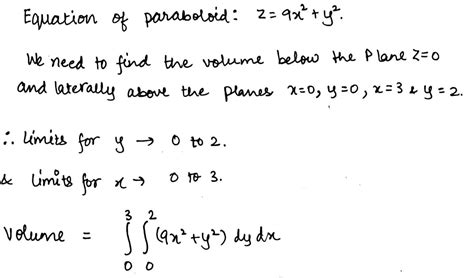 Equation of paraboloid: z=9x²+y².
We need to find the volume below the Plane Z=0
and laterally above the planes x=0, y=0, x=3 & y=2.
∴ Limits for y → 0 to 2.
& Limits for x → 0 to 3.
Volume = ∫₀³ ∫₀² (9x²+y²) dy dx